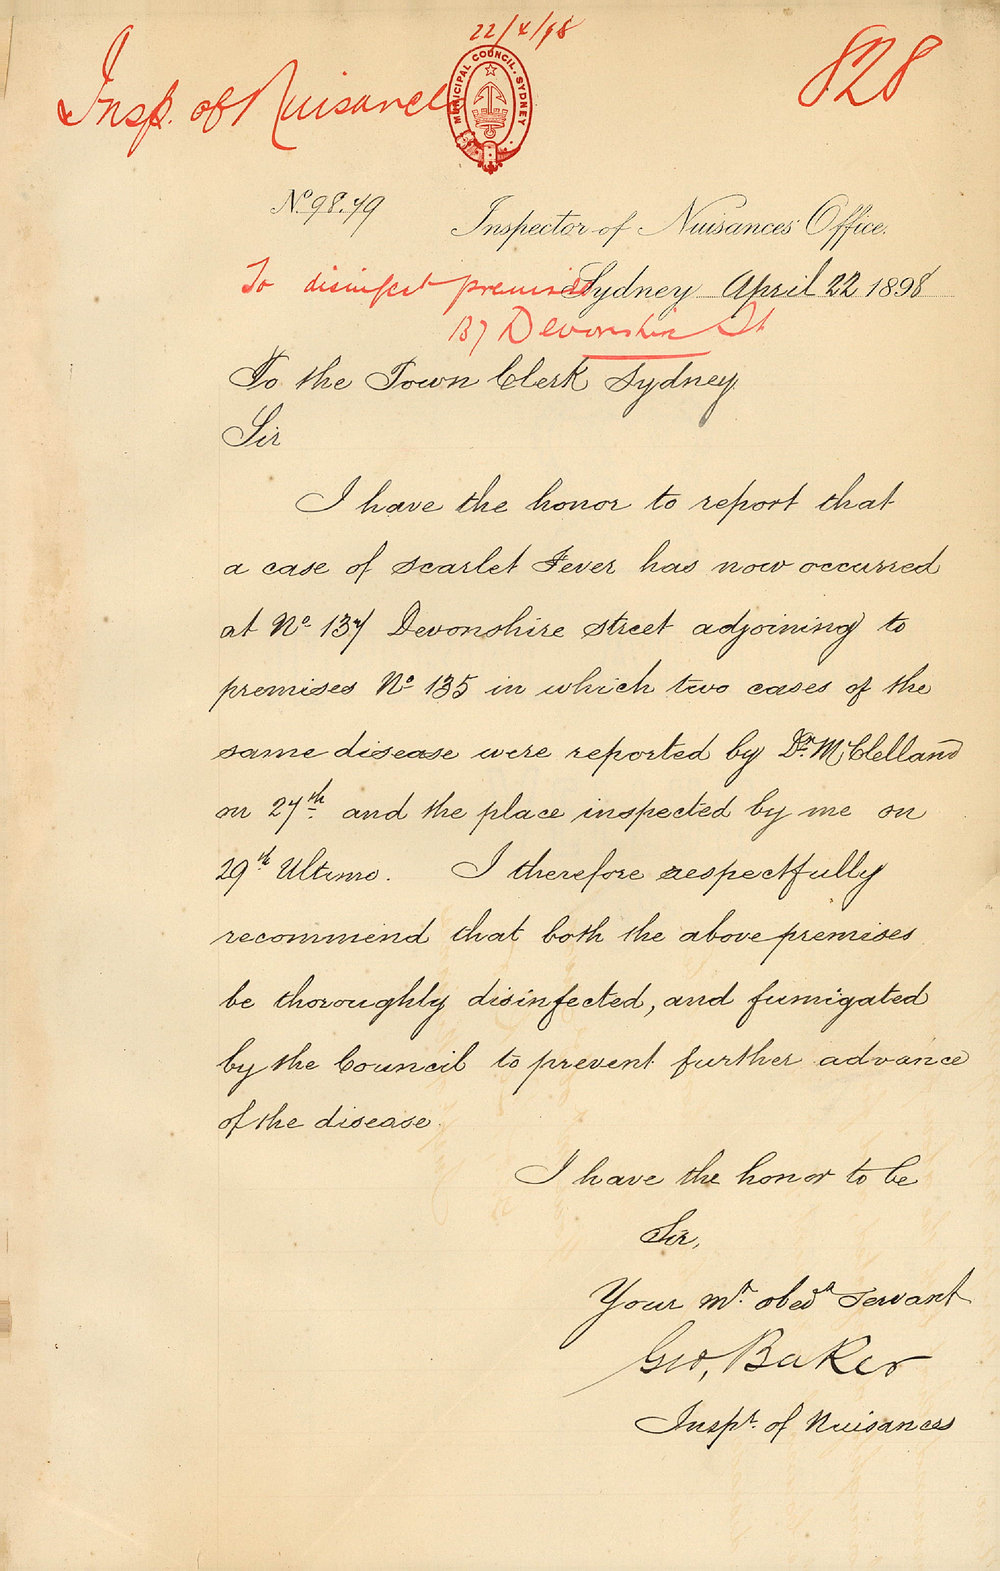 22/4/98
Insp. of Nuisances
MUNICIPAL COUNCIL. SYDNEY
828
No. 98.49
Inspector of Nuisances' Office.
To disinfect premises
Sydney April 22 1898
137 Devonshire St
To the Town Clerk Sydney
Sir
I have the honor to report that
a case of Scarlet Fever has now occurred
at No. 137 Devonshire Street adjoining to
premises No. 135 in which two cases of the
same disease were reported by Dr. McClelland
on 27th and the place inspected by me on
29th Ultimo. I therefore respectfully
recommend that both the above premises
be thoroughly disinfected, and fumigated
by the Council to prevent further advance
of the disease.
I have the honor to be
Sir,
Your mt. obedt servant
Geo, Baker
Inspt. of Nuisances